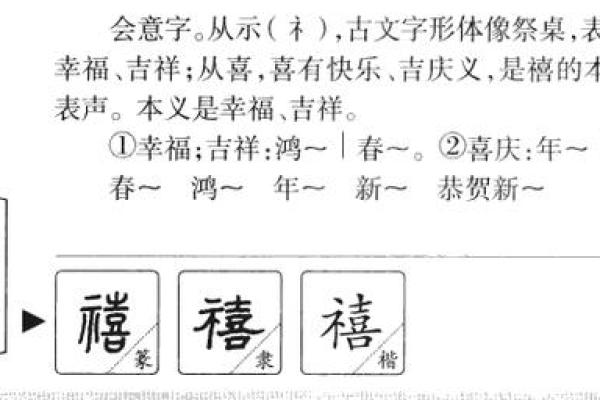 会意字。从示(礻),古文字形体像祭桌,表
幸福、吉祥;从喜,喜有快乐、吉庆义,是禧的本
表声。本义是幸福、吉祥。
①幸福;吉祥:鸿～｜春～。②喜庆:年～
春～ 鸿～ 年～ 新～ 恭贺新～
禧 篆 禧 隶 禧 楷